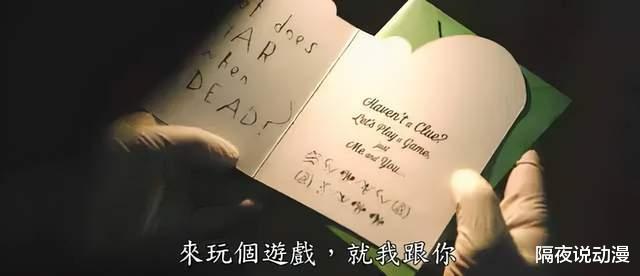 does
LIAR
when
DEAD?
Haven't a Clue?
Let's Play a Game,
just
Me and You...
來玩個遊戲，就我跟你
隔夜说动漫